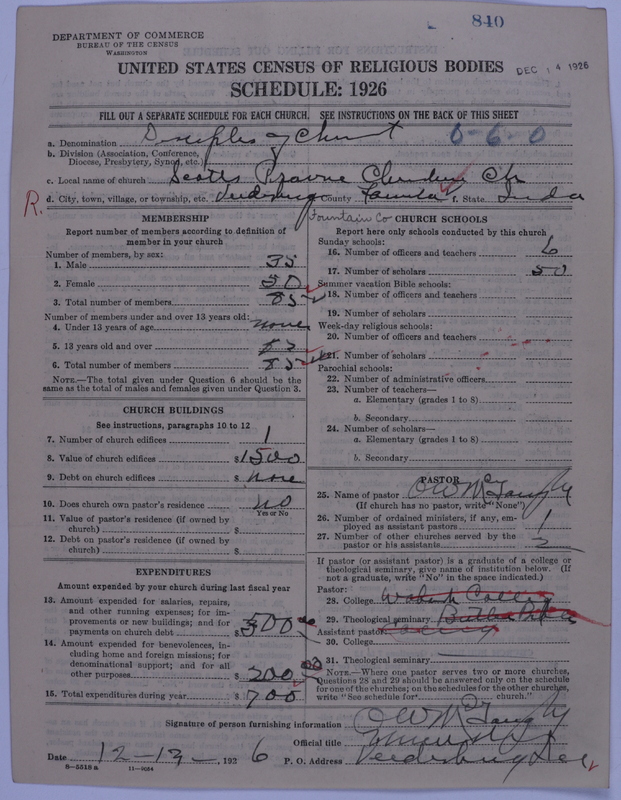 840
DEPARTMENT OF COMMERCE
BUREAU OF THE CENSUS
WASHINGTON
UNITED STATES CENSUS OF RELIGIOUS BODIES
DEC 14 1926
SCHEDULE: 1926
FILL OUT A SEPARATE SCHEDULE FOR EACH CHURCH. SEE INSTRUCTIONS ON THE BACK OF THIS SHEET
a. Denomination Disciples of Christ 0-6-0
b. Division (Association, Conference, Diocese, Presbytery, Synod, etc.)
c. Local name of church Scotts Prairie Christian Ch
R. d. City, town, village, or township, etc. Veedersburg County f. State Inda
Fountain Co
MEMBERSHIP
Report number of members according to definition of member in your church
Number of members, by sex:
1. Male 35
2. Female 50
3. Total number of members 85
Number of members under and over 13 years old:
4. Under 13 years of age none
5. 13 years old and over 85
6. Total number of members 85
NOTE.—The total given under Question 6 should be the same as the total of males and females given under Question 3.
CHURCH BUILDINGS
See instructions, paragraphs 10 to 12
7. Number of church edifices 1
8. Value of church edifices $1500
9. Debt on church edifices $ none
10. Does church own pastor's residence no
Yes or No
11. Value of pastor's residence (if owned by church) $
12. Debt on pastor's residence (if owned by church) $
EXPENDITURES
Amount expended by your church during last fiscal year
13. Amount expended for salaries, repairs, and other running expenses; for improvements or new buildings; and for payments on church debt $500 00
14. Amount expended for benevolences, including home and foreign missions; for denominational support; and for all other purposes $200 00
15. Total expenditures during year $700
CHURCH SCHOOLS
Report here only schools conducted by this church
Sunday schools:
16. Number of officers and teachers 6
17. Number of scholars 50
Summer vacation Bible schools:
18. Number of officers and teachers
19. Number of scholars
Week-day religious schools:
20. Number of officers and teachers
21. Number of scholars
Parochial schools:
22. Number of administrative officers
23. Number of teachers—
a. Elementary (grades 1 to 8)
b. Secondary
24. Number of scholars—
a. Elementary (grades 1 to 8)
b. Secondary
PASTOR
25. Name of pastor O W McGaughy
(If church has no pastor, write "None")
26. Number of ordained ministers, if any, employed as assistant pastors 1
27. Number of other churches served by the pastor or his assistants 2
If pastor (or assistant pastor) is a graduate of a college or theological seminary, give name of institution below. (If not a graduate, write "No" in the space indicated.)
Pastor:
28. College Wabash College
29. Theological seminary Butler
Assistant pastor: College
30. College
31. Theological seminary
NOTE.—Where one pastor serves two or more churches, Questions 28 and 29 should be answered only on the schedule for one of the churches; on the schedules for the other churches, write "See schedule for church."
Signature of person furnishing information O W McGaughy
Official title Minister
Date 12-13-, 1926 P. O. Address Veedersburg Ind
8-5518 a 11-9054